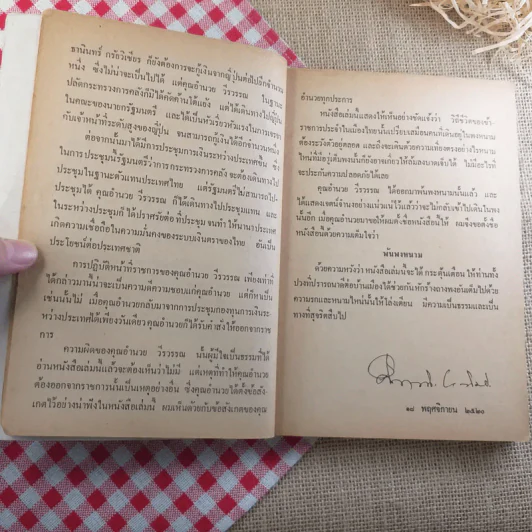 ธานินทร์ กรัยวิเชียร ก็ยังต้องการจะกู้เงินจากญี่ปุ่นต่อไปอีกจำนวน
หนึ่ง ซึ่งไม่น่าจะเป็นไปได้ แต่คุณอำนวย วีรวรรณ ในฐานะ
ปลัดกระทรวงการคลังก็มิได้คัดค้านโต้แย้ง แต่ได้เดินทางไปญี่ปุ่น
ในคณะของนายกรัฐมนตรี และได้เป็นหัวเรี่ยวหัวแรงในการเจรจา
กับเจ้าหน้าที่ระดับสูงของญี่ปุ่น จนสามารถกู้เงินได้อีกจำนวนหนึ่ง
ต่อจากนั้นมาได้มีการประชุมการเงินระหว่างประเทศขึ้น ซึ่ง
ในการประชุมนี้รัฐมนตรีว่าการกระทรวงการคลัง จะต้องเดินทางไป
ประชุมในฐานะตัวแทนประเทศไทย แต่รัฐมนตรีไม่สามารถไป
ประชุมได้ คุณอำนวย วีรวรรณ ก็ได้เดินทางไปประชุมแทน และ
ในระหว่างประชุมก็ได้ปราศรัยต่อที่ประชุม จนทำให้นานาประเทศ
เกิดความเชื่อถือในความมั่นคงของระบบเงินตราของไทย อันเป็น
ประโยชน์ต่อประเทศชาติ
การปฏิบัติหน้าที่ราชการของคุณอำนวย วีรวรรณ เพียงเท่าที่
ได้กล่าวมานี้น่าจะเป็นความดีความชอบแก่คุณอำนวย แต่ก็หาเป็น
เช่นนั้นไม่ เมื่อคุณอำนวยกลับมาจากการประชุมกองทุนการเงินระ
หว่างประเทศได้เพียงวันเดียว คุณอำนวยก็ได้รับคำสั่งให้ออกจากราช
การ
ความผิดของคุณอำนวย วีรวรรณ นั้นผู้มีใจเป็นธรรมที่ได้
อ่านหนังสือเล่มนี้แล้วจะต้องเห็นว่าไม่มี แต่เหตุที่ทำให้คุณอำนวย
ต้องออกจากราชการนั้นเป็นเหตุอย่างอื่น ซึ่งคุณอำนวยได้ตั้งข้อสัง
เกตไว้อย่างน่าฟังในหนังสือเล่มนี้ ผมเห็นด้วยกับข้อสังเกตของคุณ
อำนวยทุกประการ
หนังสือเล่มนี้แสดงให้เห็นอย่างชัดแจ้งว่า วิถีชีวิตของข้า-
ราชการประจำในเมืองไทยนั้นเปรียบเสมือนคนที่เดินอยู่ในพงหนาม
ต้องระวังตัวอยู่ตลอด และถึงจะเดินด้วยความเที่ยงตรงอย่างไรหนาม
ใหญ่ที่มีอยู่เต็มพงนั้นก็อาจเกี่ยวให้ถึงล้มบาดเจ็บได้ ไม่มีอะไรที่
จะประกันความปลอดภัยได้เลย
คุณอำนวย วีรวรรณ ได้ออกมาพ้นพงหนามนั้นแล้ว และ
ได้แสดงเจตน์จำนงอย่างแน่วแน่ไว้แล้วว่าจะไม่กลับเข้าไปเดินในพง
นั้นอีก เมื่อคุณอำนวยมาขอให้ผมตั้งชื่อหนังสือนี้ให้ ผมจึงขอตั้งชื่อ
หนังสือนี้ด้วยความเต็มใจว่า
พ้นพงหนาม
ด้วยความหวังว่า หนังสือเล่มนี้จะได้กระตุ้นเตือน ให้ท่านทั้ง
ปวงที่ปรารถนาดีต่อบ้านเมืองได้ช่วยกันหักร้างถางพงอันเต็มไปด้วย
ความรกและหนามใหญ่นั้นให้โล่งเตียน มีความเป็นธรรมและเป็น
ทางที่สุจริตสืบไป
๑๘ พฤศจิกายน ๒๕๒๐